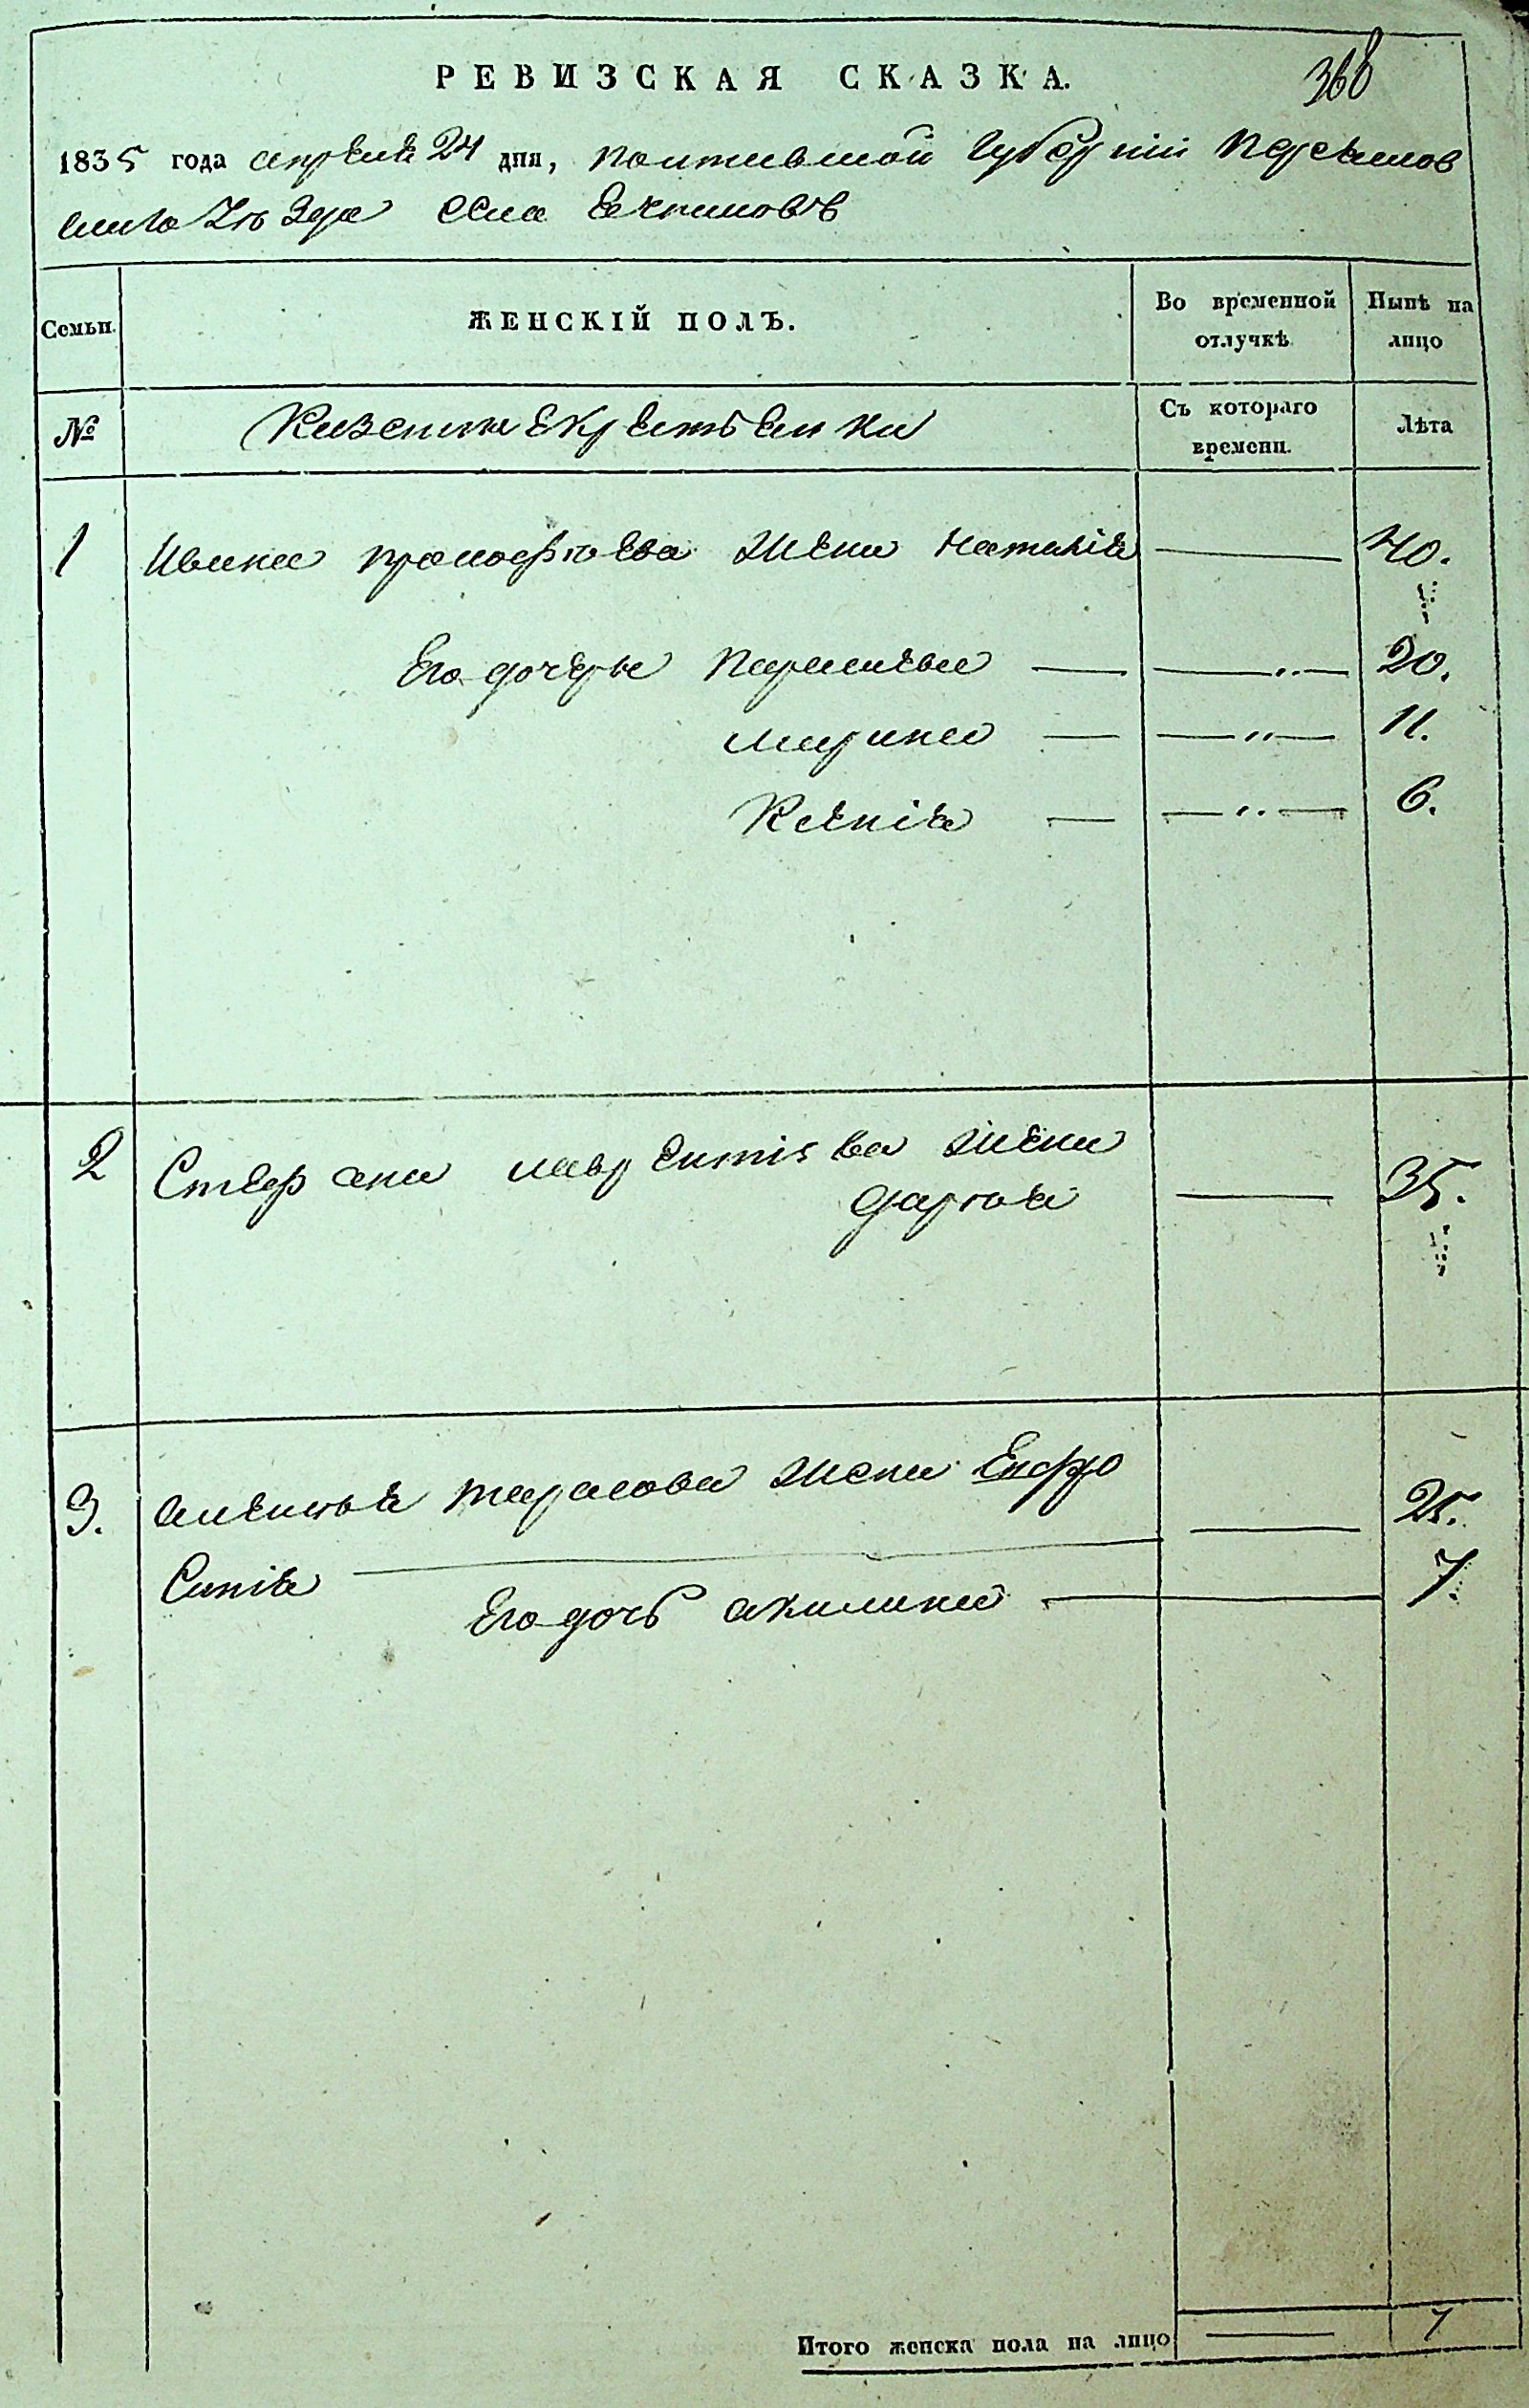 РЕВИЗСКАЯ СКАЗКА.
368
1835 года апреля 24 дня, Полтавской Губернїи Переяслов
скаго Уѣзда села
Семьи.
ЖЕНСКІЙ ПОЛЪ.
Во временной отлучкѣ
Нынѣ на лицо
№
Казенные Крестьянки
Съ котораго времени.
Лѣта
1 Ивана Прокофьева жена Наталія — 40.
Его дочерье Парасковья — — „ — 20.
Марина — — „ — 11.
Ксенія — — „ — 6.
2 Стефана Лаврентіева жена
Дарья — 35.
3. Алексья Тарасова жена Ефро
синія — 25.
Его дочь Акилина — 7.
Итого женска пола на лицо — 7